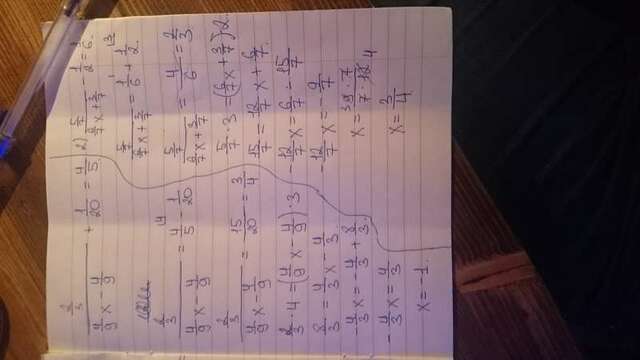 (2/3)/(4/9x - 4/9) + 1/20 = 4/5.
(2/3)/(4/9x - 4/9) = 4/5 - 1/20
(2/3)/(4/9x - 4/9) = 15/20 = 3/4
2/3 · 4 = (4/9x - 4/9) · 3
8/3 = 4/3x - 4/3
-4/3x = -4/3 + 8/3
-4/3x = 4/3
x = -1.
2) (5/7)/(6/7x + 3/7) - 1/2 = 1/6.
(5/7)/(6/7x + 3/7) = 1/6 + 1/2.
(5/7)/(6/7x + 3/7) = 4/6 = 2/3
5/7 · 3 = (6/7x + 3/7)2.
15/7 = 12/7x + 6/7
-12/7x = 6/7 - 15/7
-12/7x = -9/7
x = 9 · 7/7 · 12
x = 3/4